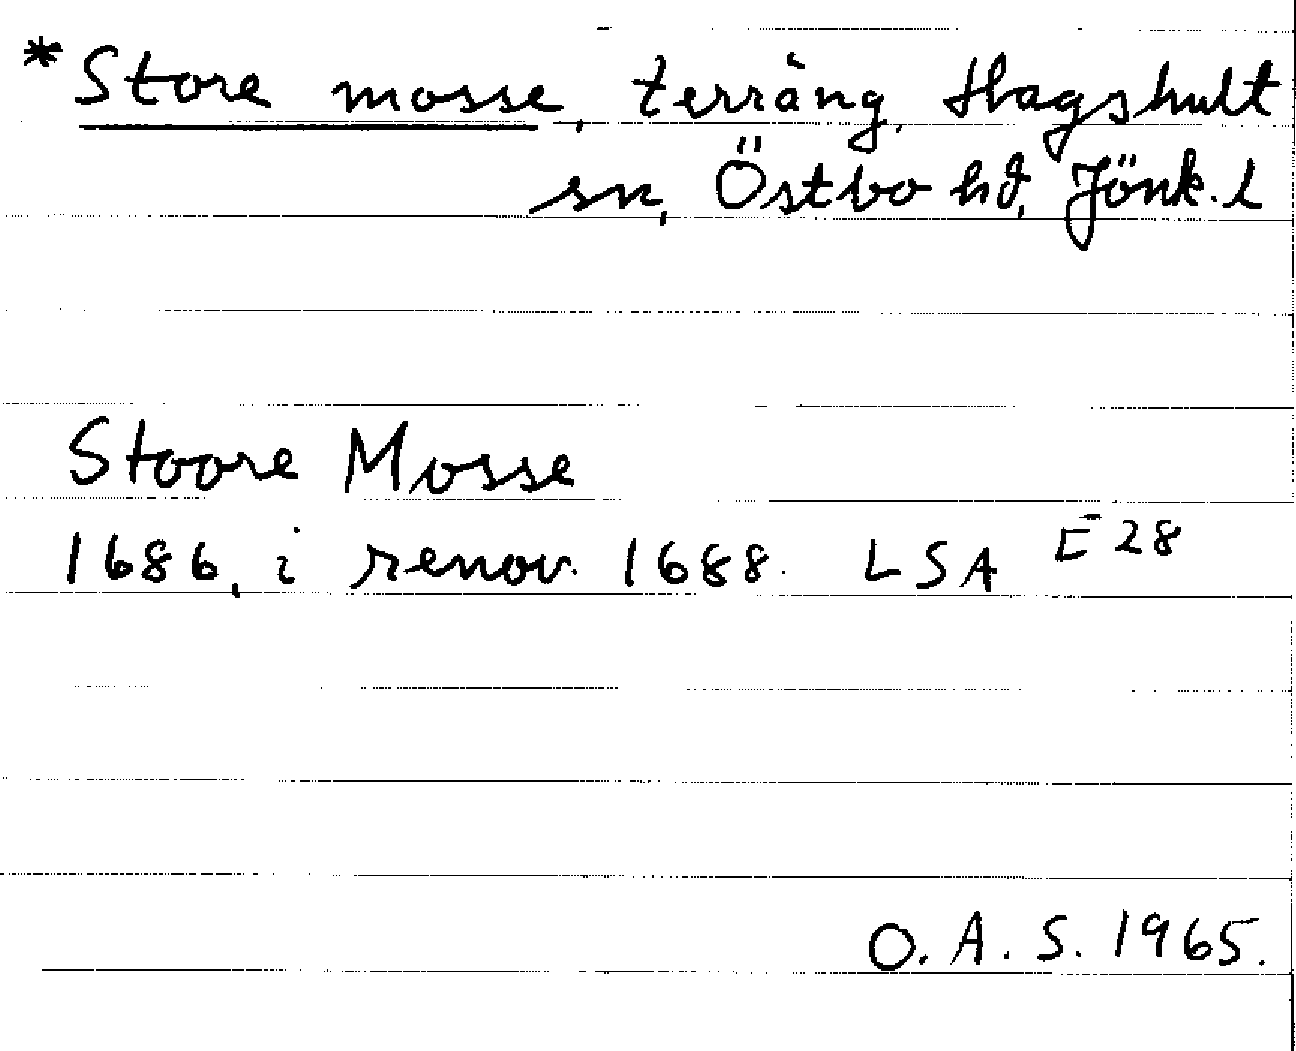 * Store mosse, terräng, Hagshult
sn, Östbo hd, Jönk. L
Stoore Mosse
1686, i renov. 1688. LSA E 28
O. A. S. 1965.